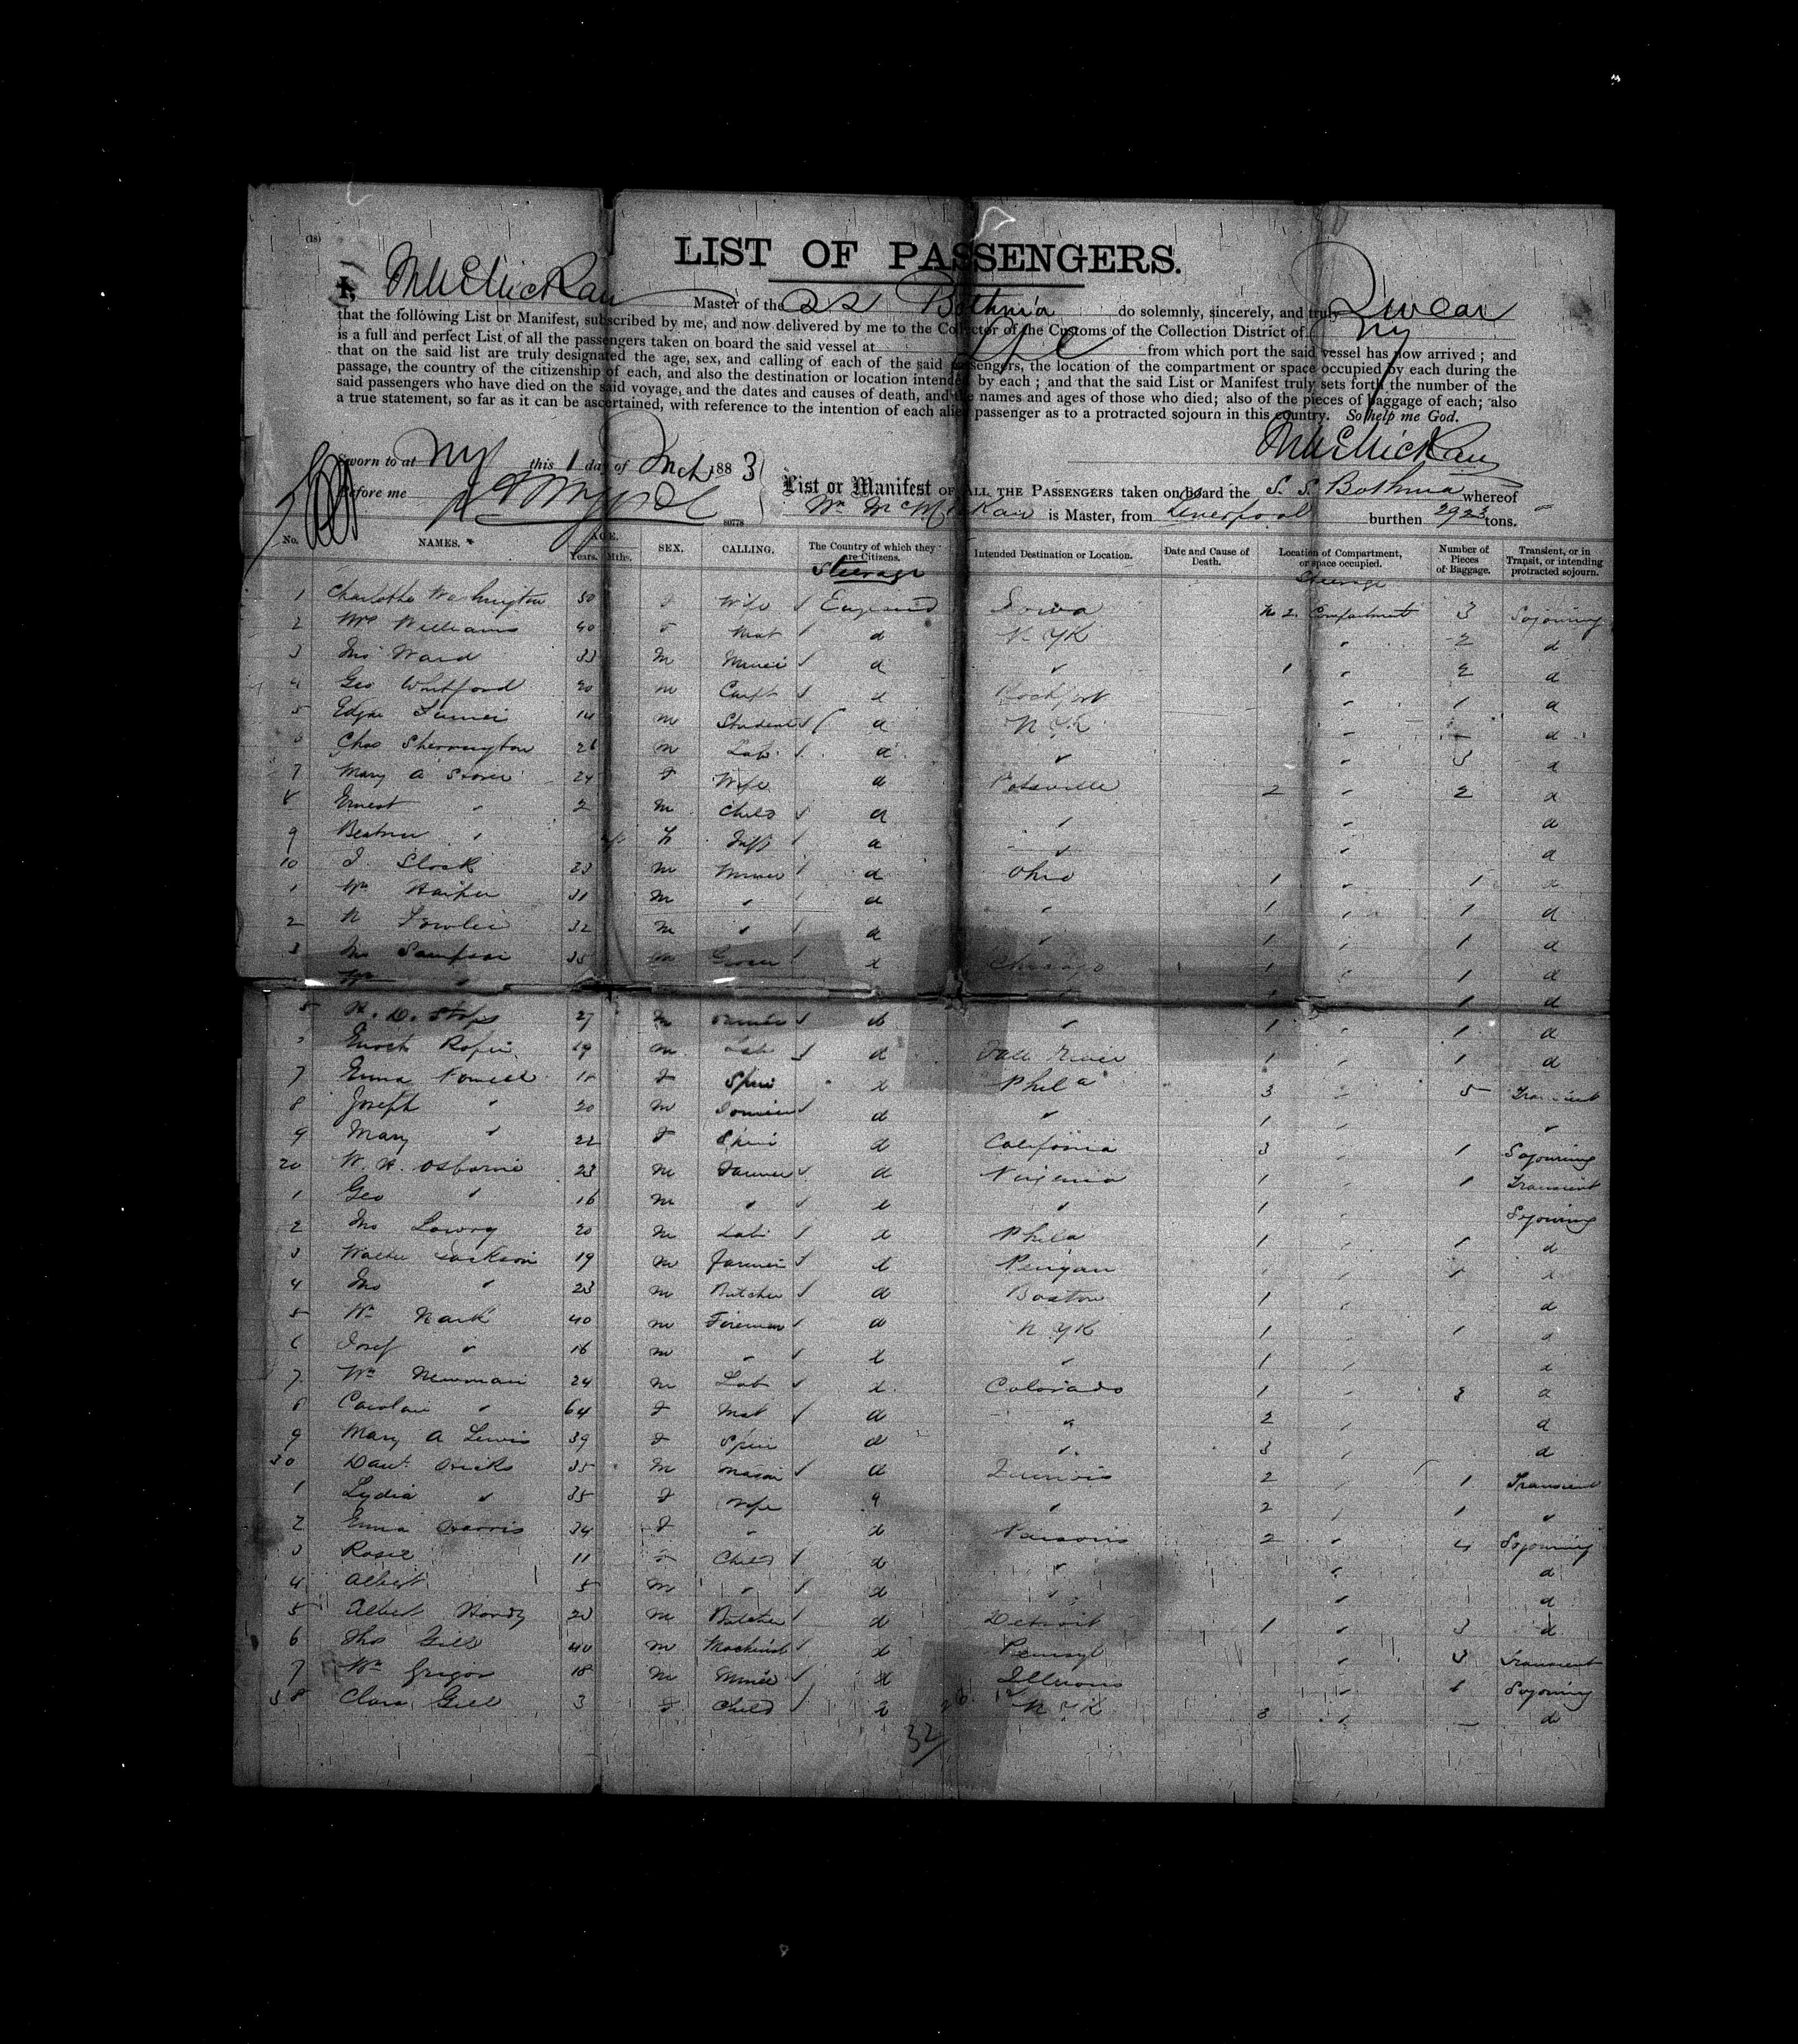 (18)
LIST OF PASSENGERS.
I, Master of the SS Bothnia do solemnly, sincerely, and truly Swear
that the following List or Manifest, subscribed by me, and now delivered by me to the Collector of the Customs of the Collection District of NY
is a full and perfect List of all the passengers taken on board the said vessel at from which port the said vessel has now arrived; and
that on the said list are truly designated the age, sex, and calling of each of the said passengers, the location of the compartment or space occupied by each during the
passage, the country of the citizenship of each, and also the destination or location intended by each; and that the said List or Manifest truly sets forth the number of the
said passengers who have died on the said voyage, and the dates and causes of death, and the names and ages of those who died; also of the pieces of baggage of each; also
a true statement, so far as it can be ascertained, with reference to the intention of each alien passenger as to a protracted sojourn in this country. So help me God.
Sworn to at NY this 1 day of Mch 1883
Before me
List or Manifest OF ALL THE PASSENGERS taken on board the S. S. Bothnia whereof
is Master, from Liverpool burthen 2923 tons.
80778
No. NAMES. AGE. Years. Mths. SEX. CALLING. The Country of which they are Citizens. Intended Destination or Location. Date and Cause of Death. Location of Compartment, or space occupied. Number of Pieces of Baggage. Transient, or in Transit, or intending protracted sojourn.
Steerage Steerage
1 Charlotte Washington 50 F Wife England Iowa No 2 Compartment 3 Sojourning
2 Mrs Williams 40 F Mat d N YK " 2 d
3 Jno Ward 33 M Miner d " 1 " 2 d
4 Geo Whitford 20 M Carpt d Rockport " 1 d
5 Edgar 14 M Student d N YK " - d
6 Chas Sherrington 26 M Lab d " " 3 d
7 Mary A Stover 24 F Wife d Potsville 2 " 2 d
8 Ernest " 2 M Child d " " d
9 Beatrice " F Inft d " " d
10 J. Slock 23 M Miner d Ohio 1 " 1 d
1 Wm Harper 31 M " d " 1 " 1 d
2 N Fowler 32 M " d " 1 " 1 d
3 Sampson 35 M Grocer d Chicago 1 " 1 d
Wm " 1 d
5 H. D. 27 M d " 1 " 1 d
Enoch 19 M Lab d Fall River 1 " 1 d
7 Emma Powell 18 F Spin d Phila 3 " 5 Transient
8 Joseph " 20 M d " 1 " "
9 Mary " 22 F Spin d California 3 " 1 Sojourning
20 W. H. Osborne 23 M Farmer d Virginia 1 " 1 Transient
1 Geo " 16 M " d " 1 " Sojourning
2 Jno Lowry 20 M Lab d Phila 1 " 1 d
3 Walter Jackson 19 M Farmer d " 1 d
4 Jno " 23 M Butcher d Boston 1 " d
5 Wm Nark 40 M Fireman d N YK 1 " 1 d
6 Josef " 16 M " d " 1 " d
7 Wm Newman 24 M Lab d Colorado 1 " 3 d
8 " 64 F Mat d " 2 " d
9 Mary A Lewis 39 F Spin d " 3 " d
30 Danl Hicks 35 M Mason d Illinois 2 " 1 Transient
1 Lydia " 35 F Wife d " 2 " 1 "
2 Emma Harris 34 F " d Parsons 2 " 4 Sojourning
3 Rosie 11 F Child d " " d
4 Albert 5 M " d " " d
5 Albert Hordy 23 M Butcher d Detroit 1 " 3 d
6 Thos Gill 40 M Machinist d Pensyl " 3 Transient
7 Wm Grigor 18 M Miner d Illinois " 1 Sojourning
38 Clara Gill 3 F Child d N YK 3 " - d
32/